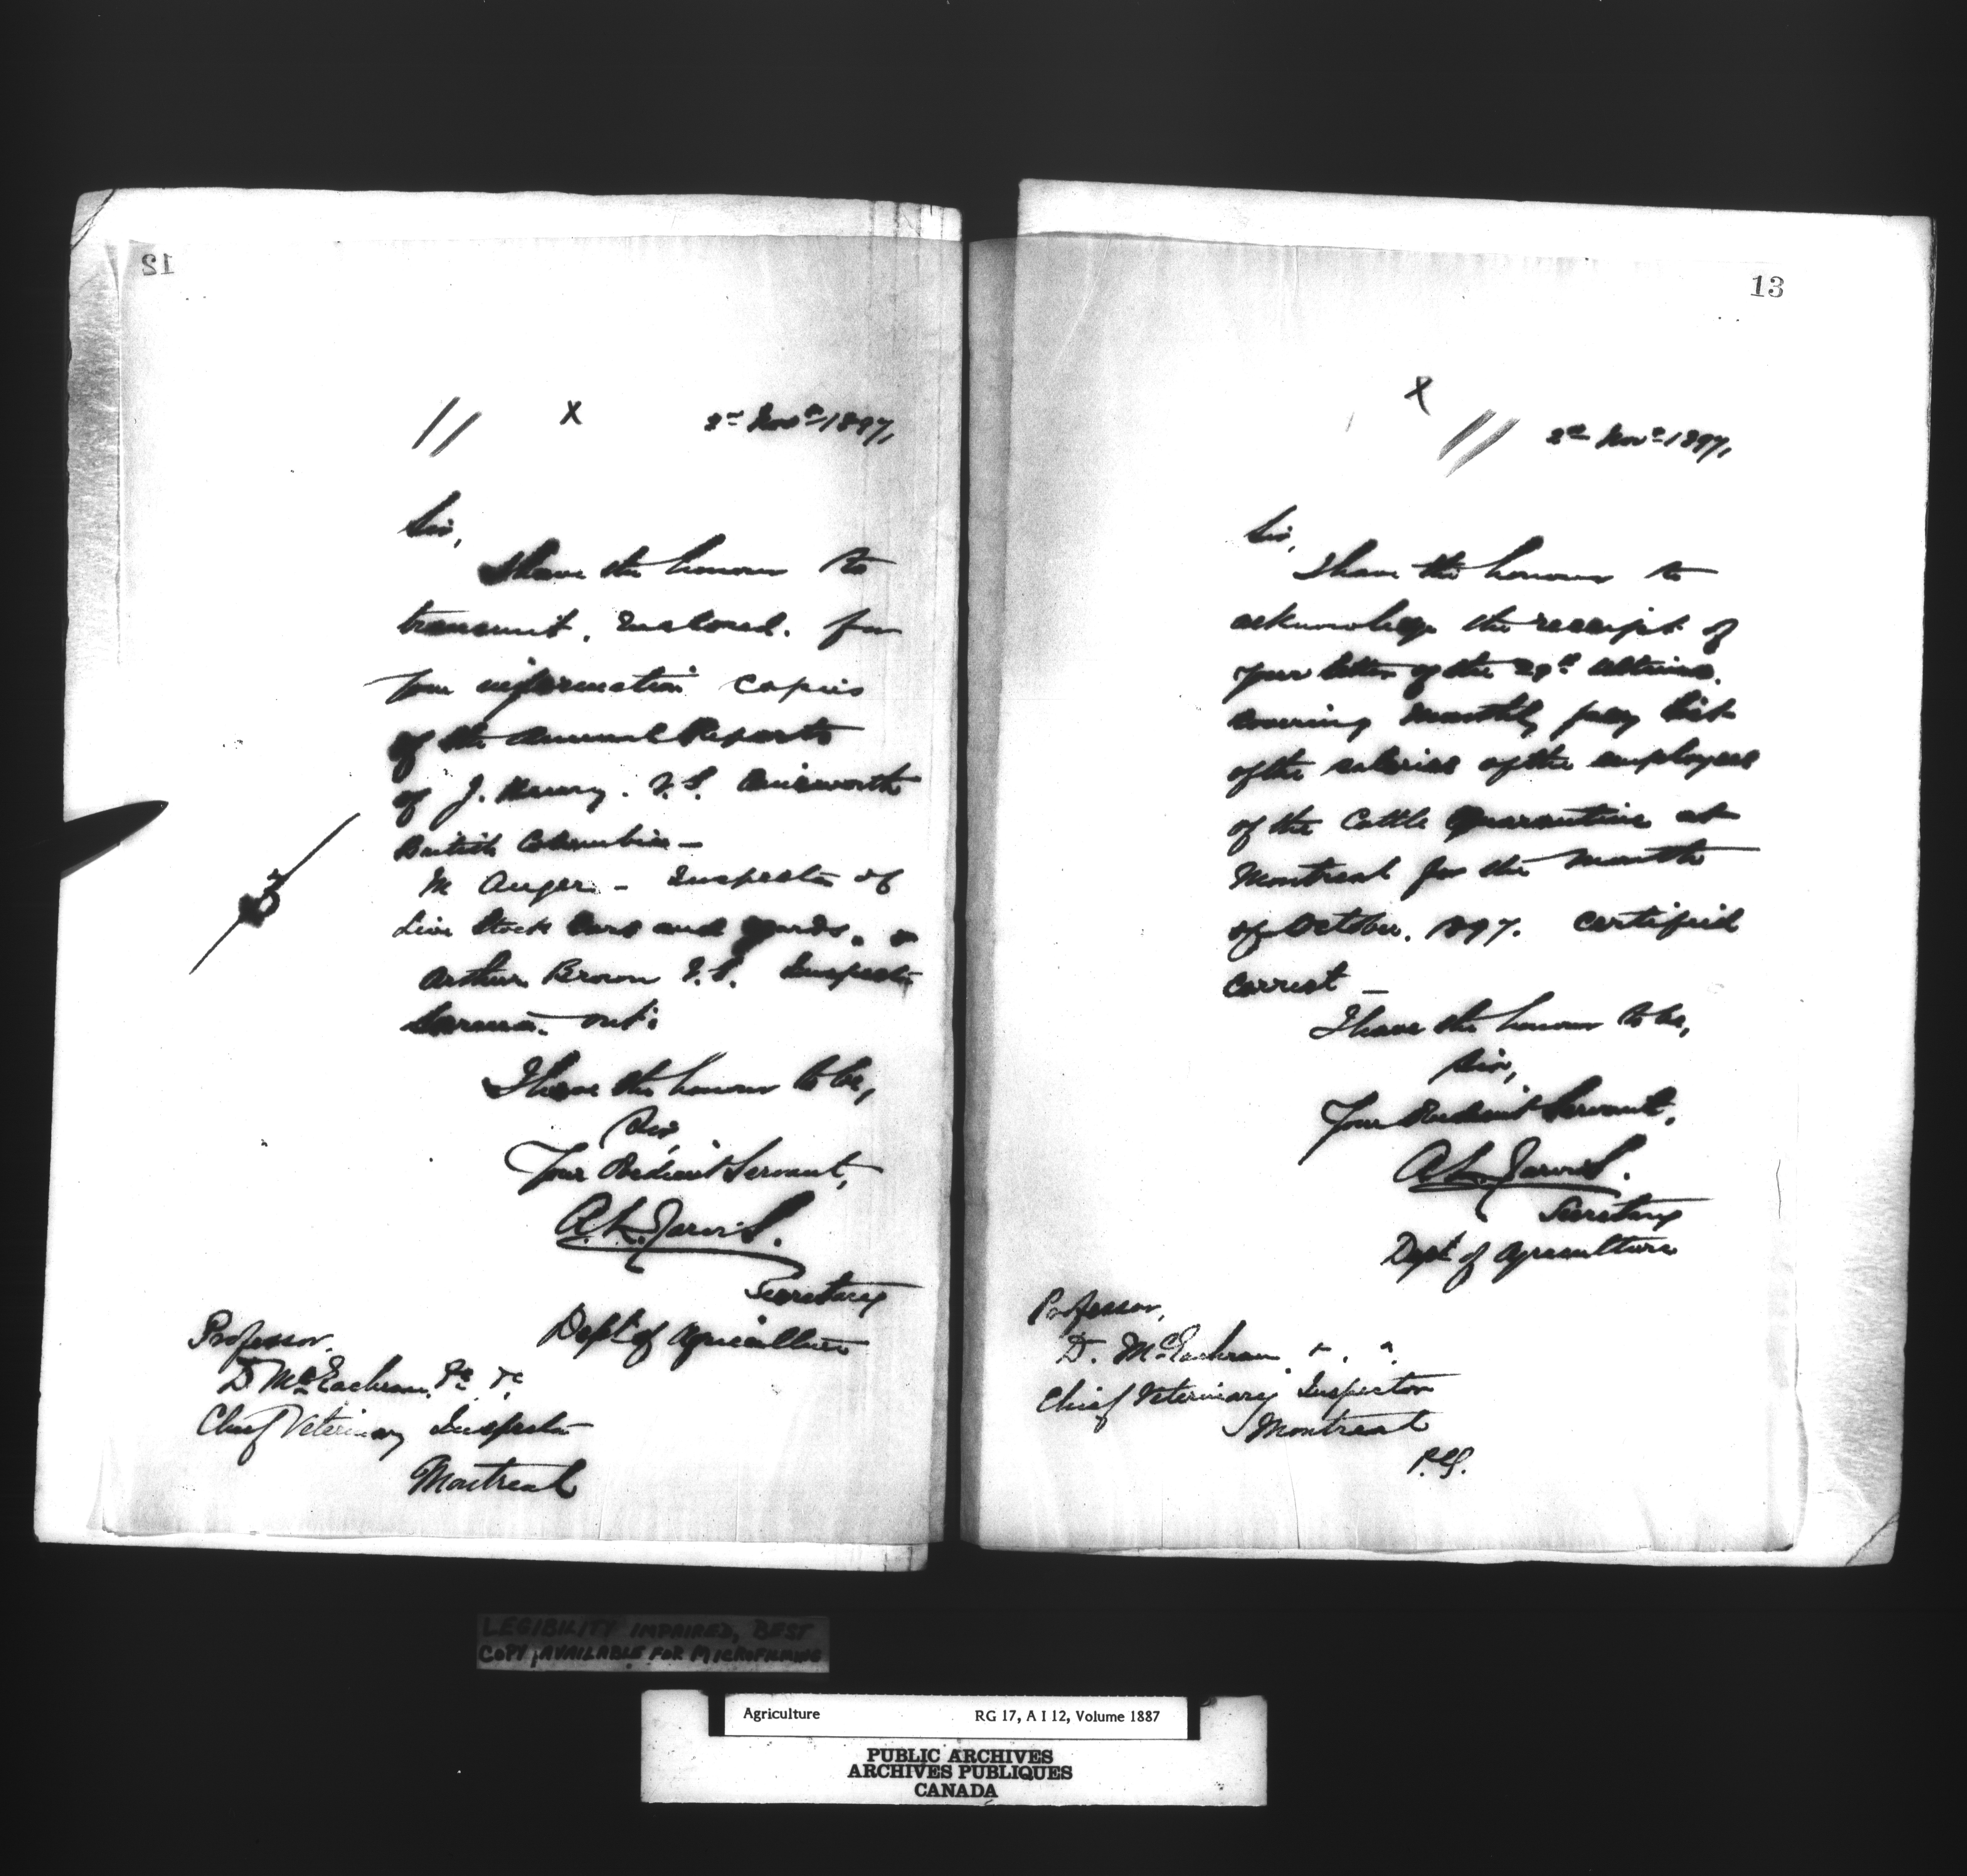 12
// X 2nd Novr 1897,
Sir,
I have the honour to
transmit, enclosed, for
your information copies
of the Annual Reports
of J. V.S. Ainsworth
British Columbia —
M Auger — Inspector of
Live Stock Cars and Yards, &
Arthur Brown V.S. Inspector
Sarnia. Ont:
I have the honour to be,
Sir,
Your Obedient Servant,
A. L. Jarvis.
Secretary
Dept. of Agriculture
Professor,
D. McEachran, &c &c
Chief Veterinary Inspector
Montreal
13
X
// 2nd Novr 1897,
Sir,
I have the honour to
acknowledge the receipt of
your letter of the 29th ultimo,
covering monthly pay list
of the salaries of the employees
of the Cattle Quarantine at
Montreal for the month
of October, 1897. certified
correct —
I have the honour to be,
Sir,
Your Obedient Servant,
A. L. Jarvis.
Secretary
Dept. of Agriculture
Professor,
D. McEachran
Chief Veterinary Inspector
Montreal
LEGIBILITY IMPAIRED, BEST
COPY AVAILABLE FOR MICROFILMING
Agriculture RG 17, A I 12, Volume 1887
PUBLIC ARCHIVES
ARCHIVES PUBLIQUES
CANADA